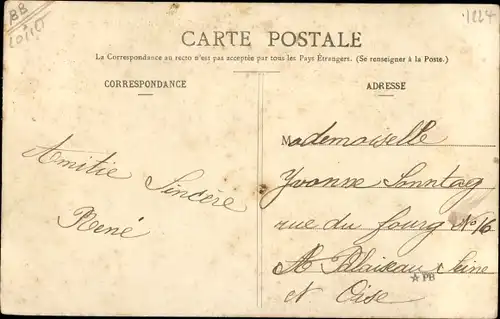 BB
1224
CARTE POSTALE
La Correspondance au recto n'est pas acceptée par tous les Pays Étrangers. (Se renseigner à la Poste.)
CORRESPONDANCE
ADRESSE
Amitie Sincère
René
Mademoiselle
Yvonne Sonntag
rue du fourg No 16
A Palaiseau Seine
et Oise
PB